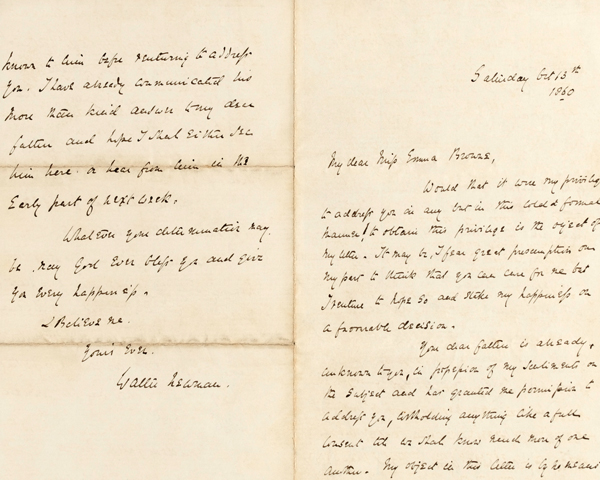 Saturday Oct 13th
1860
My dear Miss Emma Browne,
Would that it were my privileg
to address you in any but in this cold & formal
manner! to obtain this privilege is the object of
my letter. It may be, I fear great presumption on
my part to think that you can care for me but
I venture to hope so and stake my happiness on
a favourable decision.
Your dear father is already,
unknown to you, in possession of my sentiments on
the subject and has granted me permission to
address you, witholding anything like a full
consent till we shall know much more of one
another. My object in this letter is by no means
known to him before venturing to address
you. I have already communicated his
more than kind answer to my dear
father and hope I shall either see
him here or hear from him in the
early part of next week.
Whatever your determination may
be, may God ever bless you and give
you every happiness.
& Believe me.
Yours Ever.
Wallie Newman.